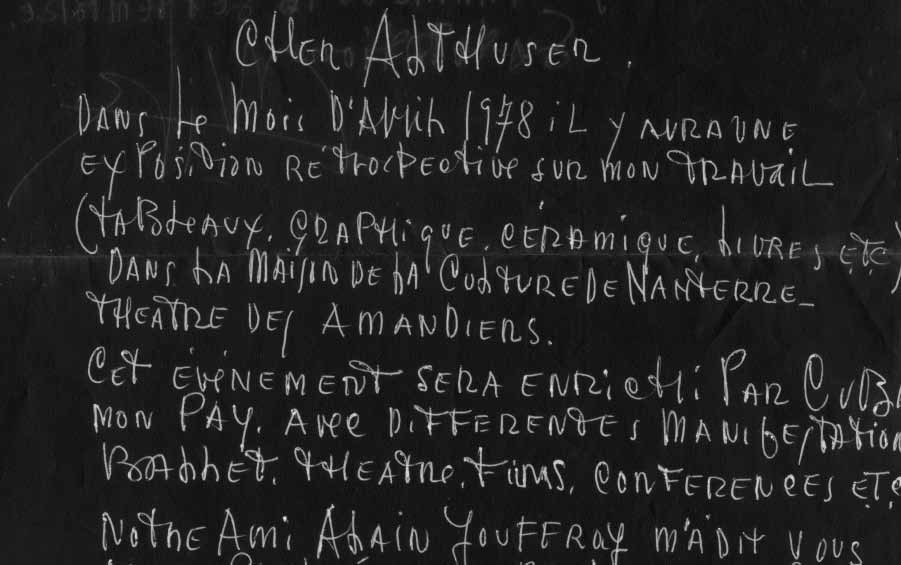 CHER ALTHUSER.
DANS LE MOIS D'AVRIL 1978 IL Y AURA UNE
EXPOSITION RÉTROCPECTIVE SUR MON TRAVAIL
(TABLEAUX, GRAPHIQUE, CÉRAMIQUE, LIVRES ETC)
DANS LA MAISON DE LA CULTURE DE NANTERRE_
THEATRE DES AMANDIERS.
CET ÉVÉNEMENT SERA ENRICHI PAR CUBA
MON PAY. AVEC DIFFERENTES MANIFESTATION
BALLET, THEATRE, FILMS, CONFERENCES ETC
NOTRE AMI ALAIN JOUFFROY M'A DIT VOUS